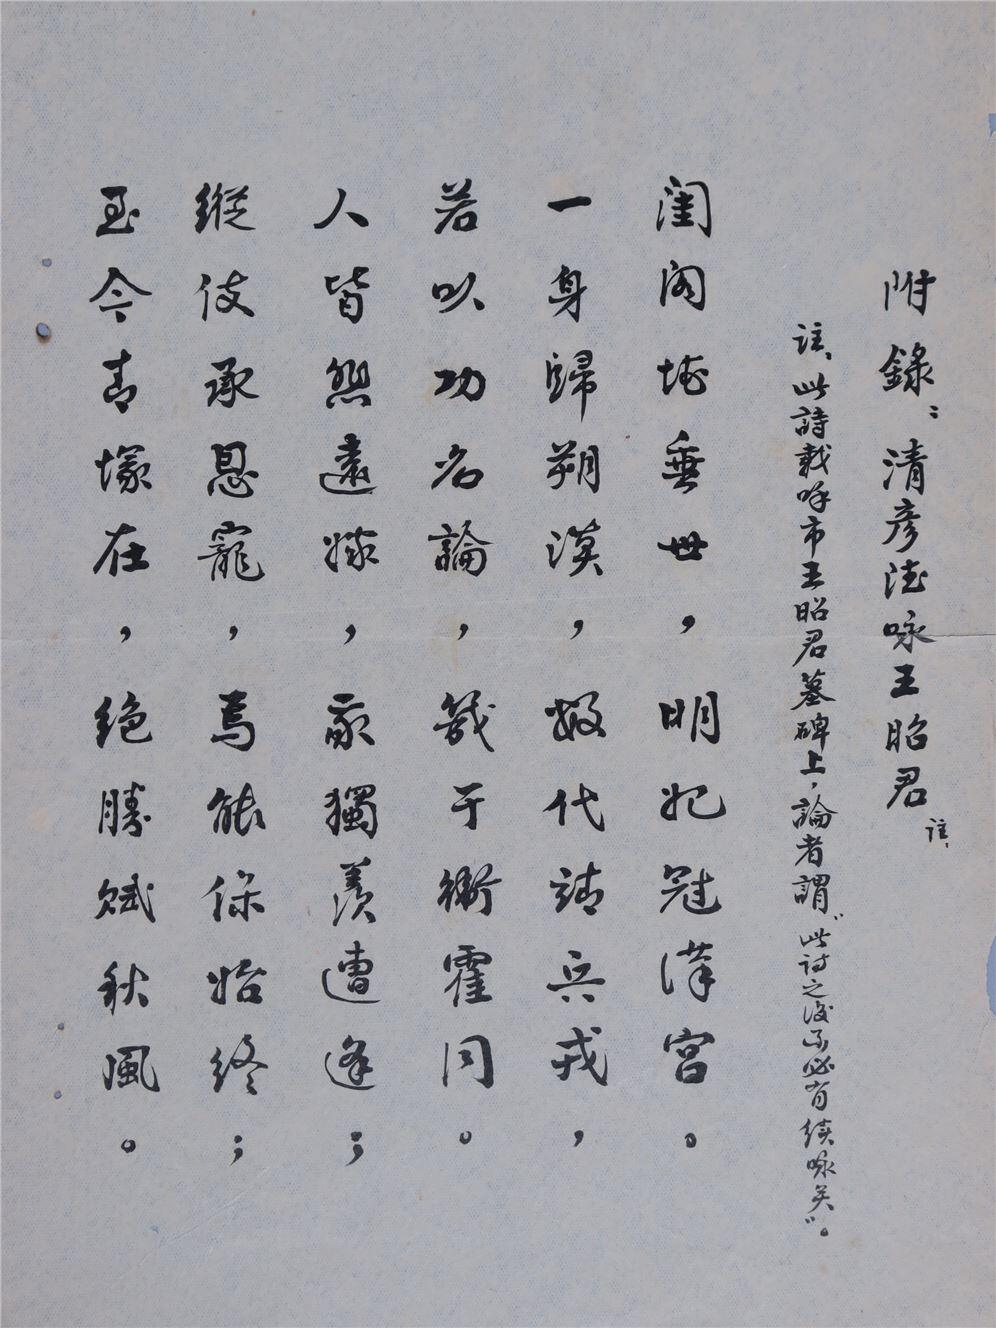 附錄：清彥德咏王昭君註、
註、此詩載呼市王昭君墓碑上，論者謂“此詩之後不必有續咏矣”。
閨閣堪垂世，明妃冠漢宮。
一身歸朔漠，數代靖兵戎，
若以功名論，幾于衛霍同。
人皆怨遠嫁，我獨羨遭逢；
縱使承恩寵，焉能保始終；
至今青塚在，絕勝賦秋風。